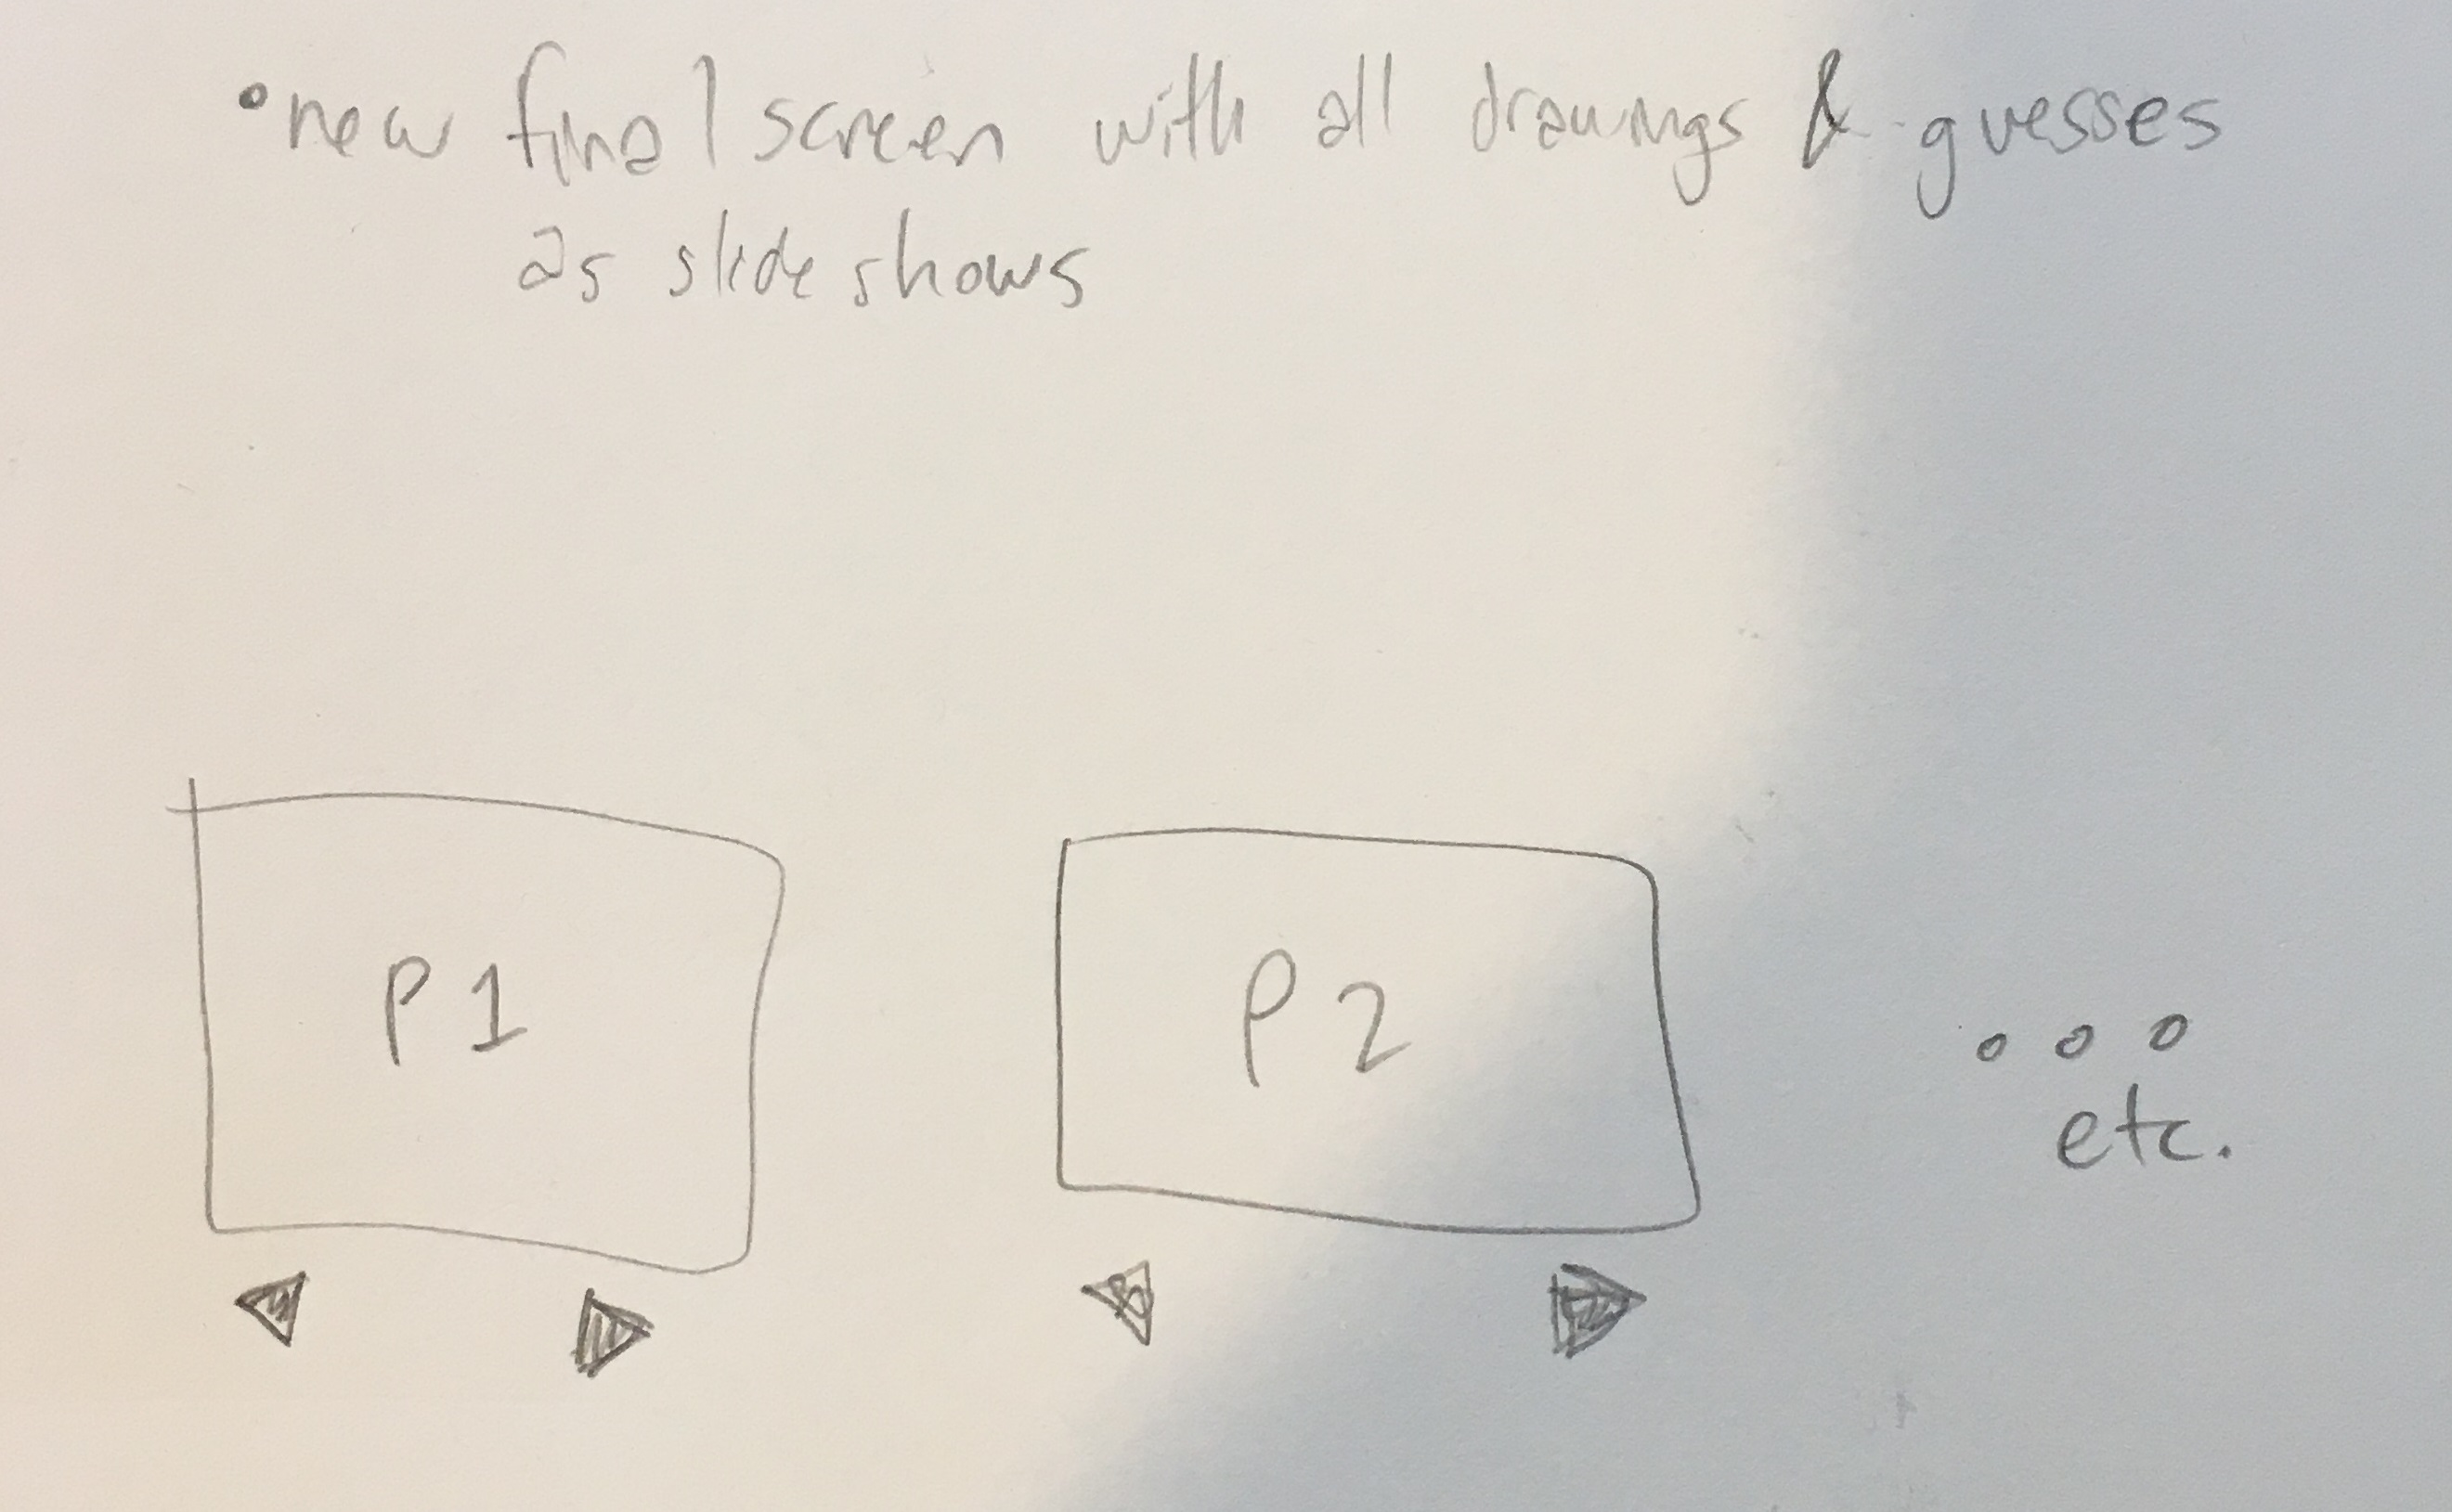 •new final screen with all drawings & guesses
as slide shows
P1
P2
...
etc.